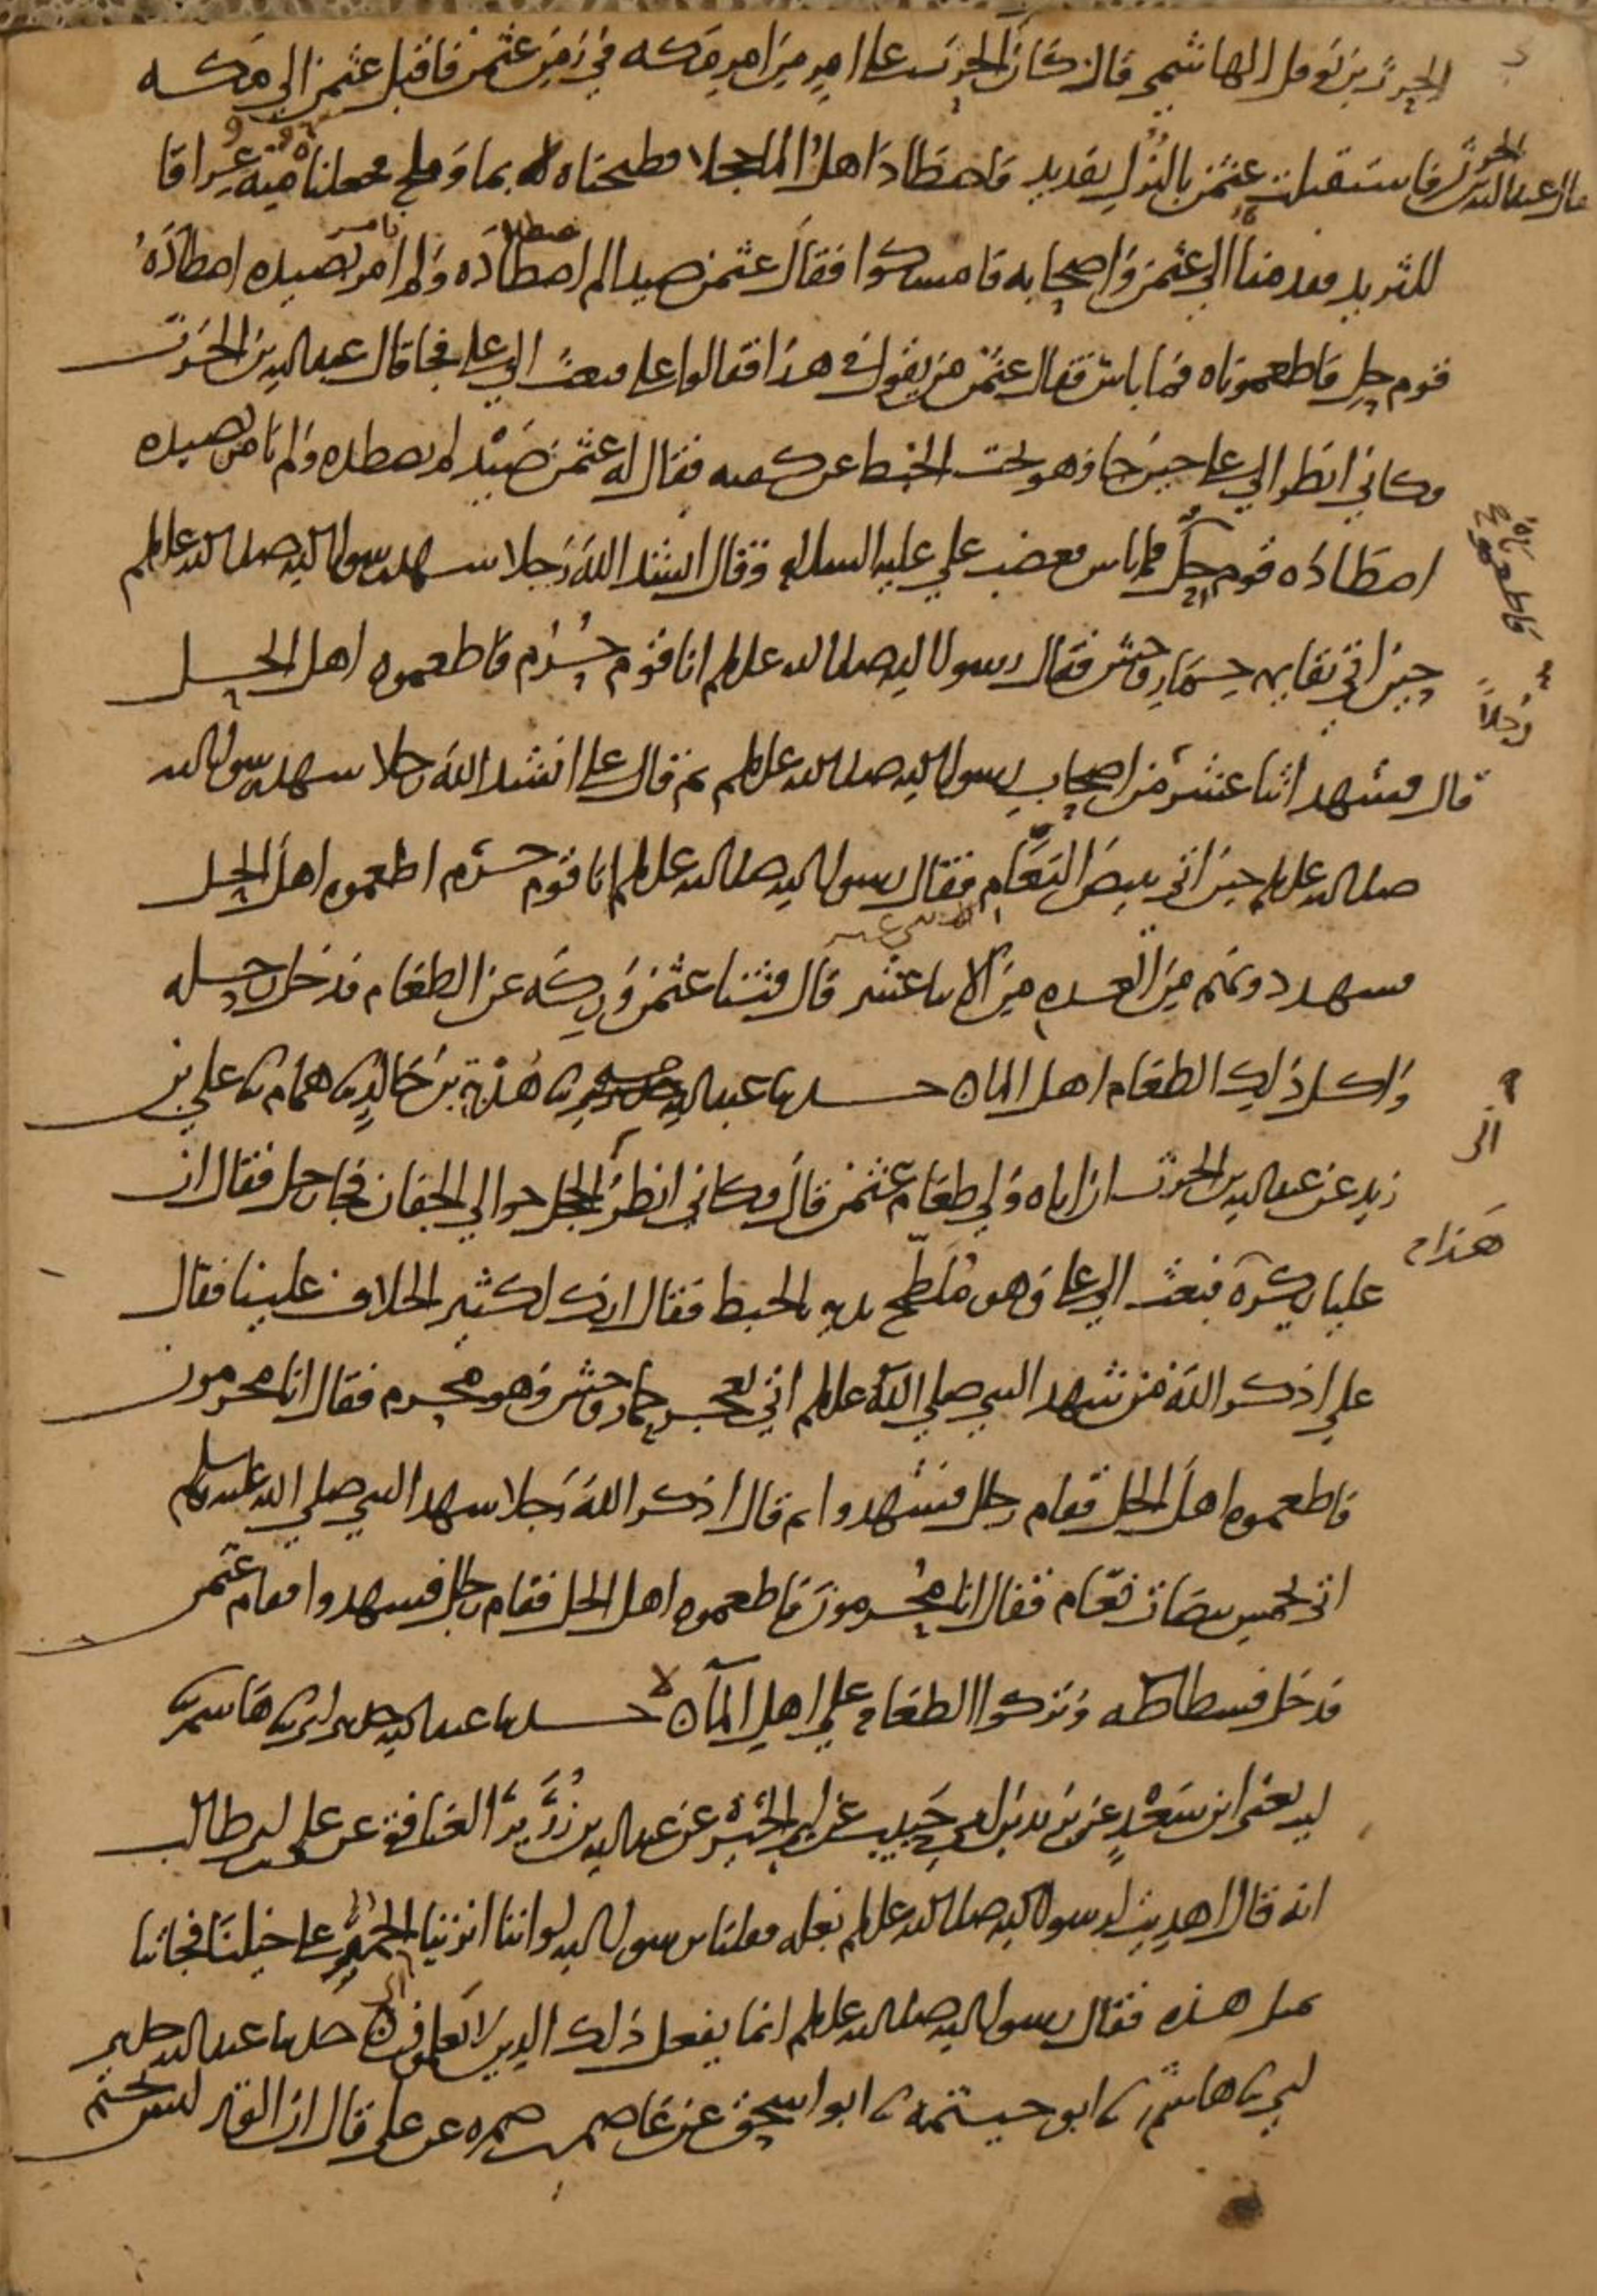 الحرث بن نوفل الهاشمي قال كان الحرث على امر من امر مكه في زمن عثمن فاقبل عثمن الى مكه
قال عبد الله بن الحرث فاستقبلت عثمن بالنزل بقديد فاصطاد اهل الما حجلا فطبخناه بما وملح فجعلناه عراقا
للثريد فقدمناه الى عثمن واصحابه فامسكوا فقال عثمن صيد لم اصطاده ولم امر بصيده اصطاده
قوم حل فاطعموناه فما باس فقال عثمن من يقول في هذا فقالوا علي فبعث الى علي فجا قال عبد الله بن الحرث
فكاني انظر الى علي حين جا وهو يحت الخبط عن كفيه فقال له عثمن صيد لم نصطده ولم نامر بصيده
اصطاده قوم حل فما باس فغضب علي عليه السلام وقال انشد الله رجلا شهد رسول الله صلى الله عليه وسلم
فاطعموناه
حين اتي بقايمه حمار وحش فقال رسول الله صلى الله عليه وسلم انا قوم حرم فاطعموه اهل الحل
رجلا
قال فشهد اثنا عشر من اصحاب رسول الله صلى الله عليه وسلم ثم قال علي انشد الله رجلا شهد رسول الله
صلى الله عليه وسلم حين اتي ببيض النعام فقال رسول الله صلى الله عليه وسلم انا قوم حرم اطعموه اهل الحل
فشهد دونهم من العده من الاثنا عشر قال فثنا عثمن وركه عن الطعام فدخل رحله
واكل ذلك الطعام اهل الما حدثنا عبد الله ثنا هدبة بن خالد ثنا همام ثنا علي بن
زيد عن عبد الله بن الحرث ان اباه ولي طعام عثمن قال فكاني انظر الى الحجل حوالي الجفان فجا رجل فقال ان
عليا يكره هذا فبعث الى علي وهو ملطخ يديه بالخبط فقال انك لكثير الخلاف علينا فقال
علي اذكر الله من شهد النبي صلى الله عليه وسلم اتي بعجز حمار وحش وهو محرم فقال انا محرمون
فاطعموه اهل الحل فقام رجال فشهدوا ثم قال اذكر الله رجلا شهد النبي صلى الله عليه وسلم
اتي بخمس بيضات نعام فقال انا محرمون فاطعموه اهل الحل فقام رجال فشهدوا فقام عثمن
فدخل فسطاطه وتركوا الطعام على اهل الما حدثنا عبد الله حدثني ابي ثنا هاشم ثنا
ليث يعني ابن سعد عن يزيد بن ابي حبيب عن ابي الخير عن عبد الله بن زرير الغافقي عن علي بن ابي طالب
انه قال اهديت لرسول الله صلى الله عليه وسلم بغله فقلنا يا رسول الله لو اننا انزينا الحمر على خيلنا فجاتنا
بمثل هذه فقال رسول الله صلى الله عليه وسلم انما يفعل ذلك الذين لا يعلمون حدثنا عبد الله حدثني
ابي ثنا هاشم ثنا ابو خيثمه ثنا ابو اسحق عن عاصم بن ضمره عن علي قال ان الوتر ليس بحتم